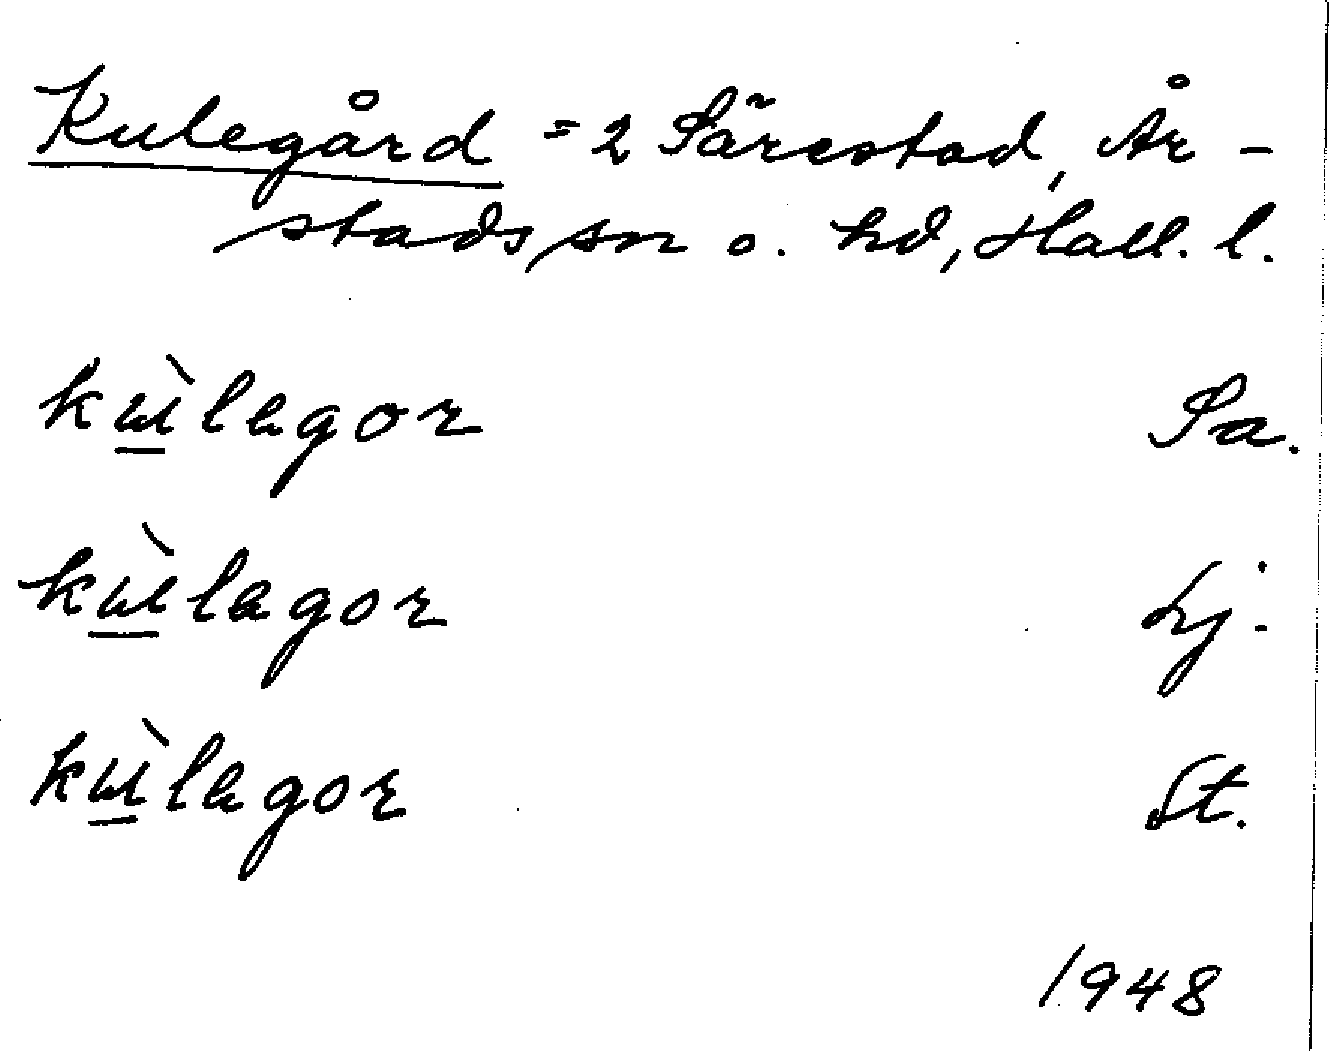 Kulegård = 2 Särestad, År-
stads sn o. hd, Hall. l.
kɯ̀lagor Sa.
kɯ̀lagor Lj.
kɯ̀lagor St.
1948